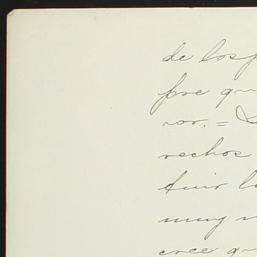 de los p
pre qu
vor. =
rechos
fuir l
muy
cree qu